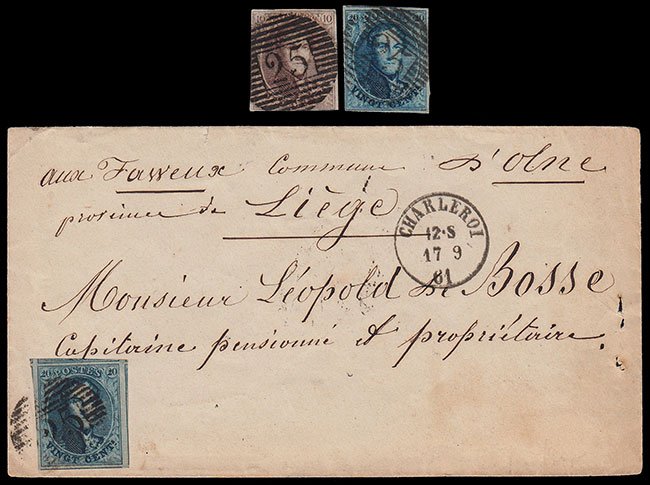 10 10
25
20 20
VINGT CENT.
aux Faweux Commune D'Olne
province de Liège
CHARLEROI
12·S
17 9
61
Monsieur Léopold De Bosse
Capitaine pensionné & propriétaire
20 POSTES 20
VINGT CENT.